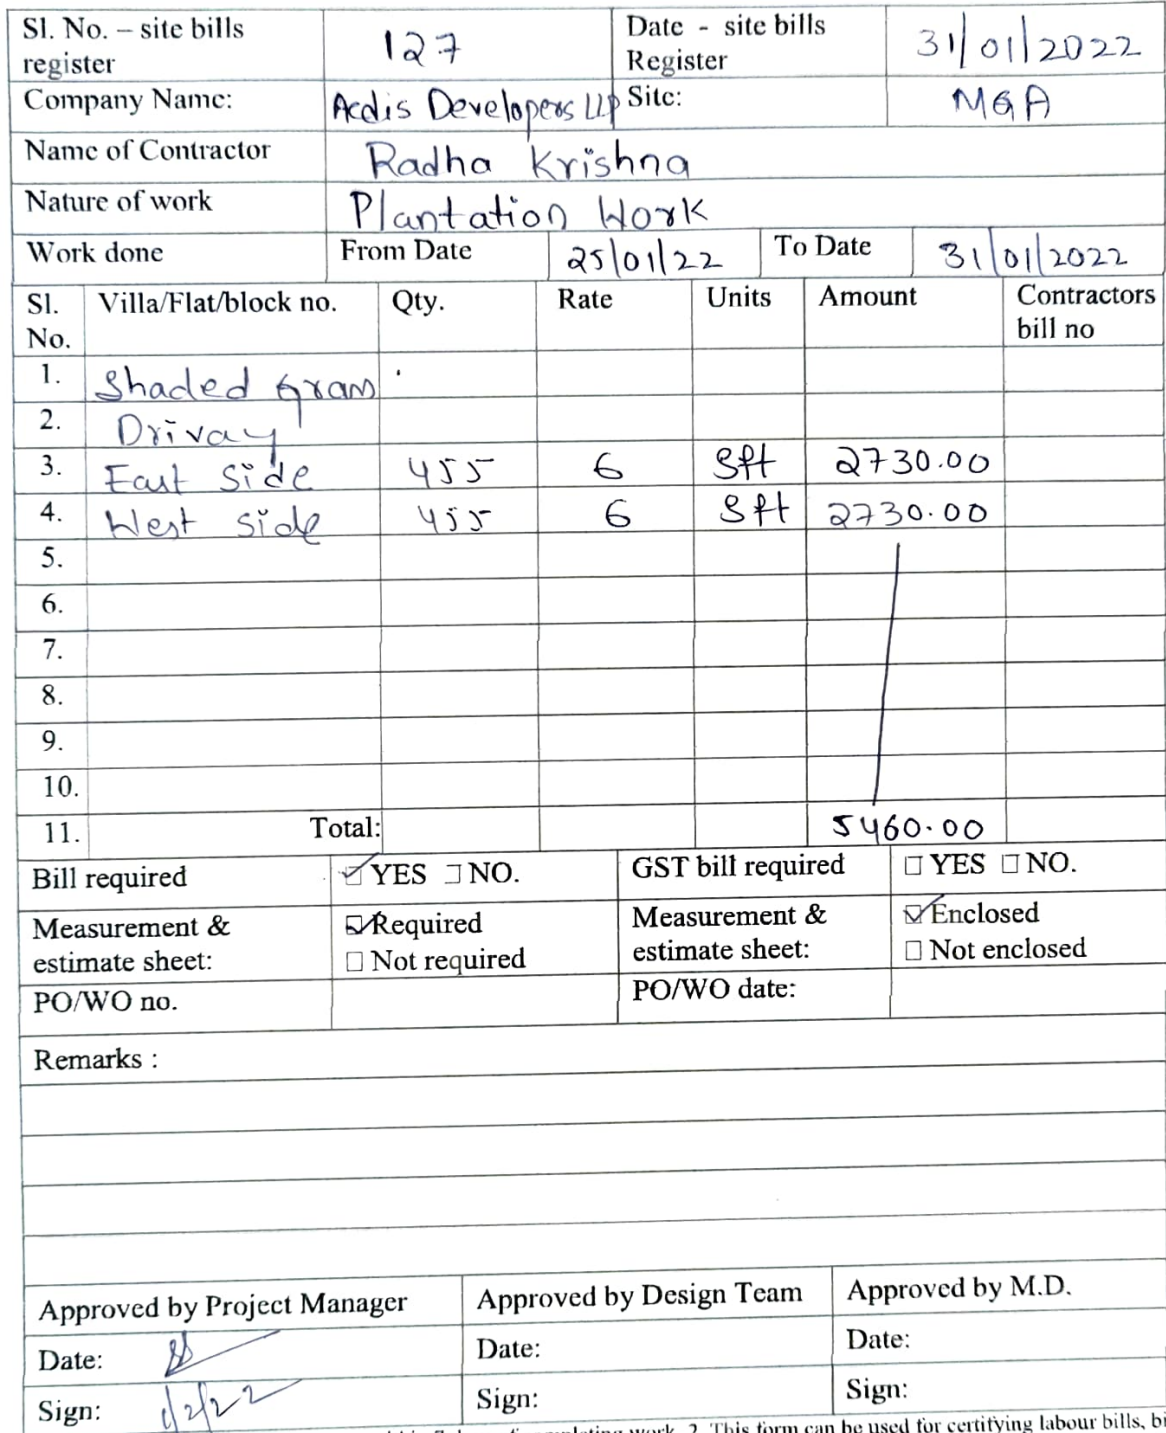 Sl. No. – site bills register 127 Date - site bills Register 31/01/2022
Company Name: Acdis Developers LLP Site: MGA
Name of Contractor Radha Krishna
Nature of work Plantation Work
Work done From Date 25/01/22 To Date 31/01/2022
Sl. No. Villa/Flat/block no. Qty. Rate Units Amount Contractors bill no
1. Shaded Grass
2. Drivay
3. East side 455 6 Sft 2730.00
4. West side 455 6 Sft 2730.00
5.
6.
7.
8.
9.
10.
11. Total: 5460.00
Bill required ☑ YES ☐ NO. GST bill required ☐ YES ☐ NO.
Measurement & estimate sheet: ☑ Required ☐ Not required Measurement & estimate sheet: ☑ Enclosed ☐ Not enclosed
PO/WO no. PO/WO date:
Remarks :
Approved by Project Manager Approved by Design Team Approved by M.D.
Date: Date: Date:
Sign: 1/2/22 Sign: Sign:
work. 2. This form can be used for certifying labour bills, bi